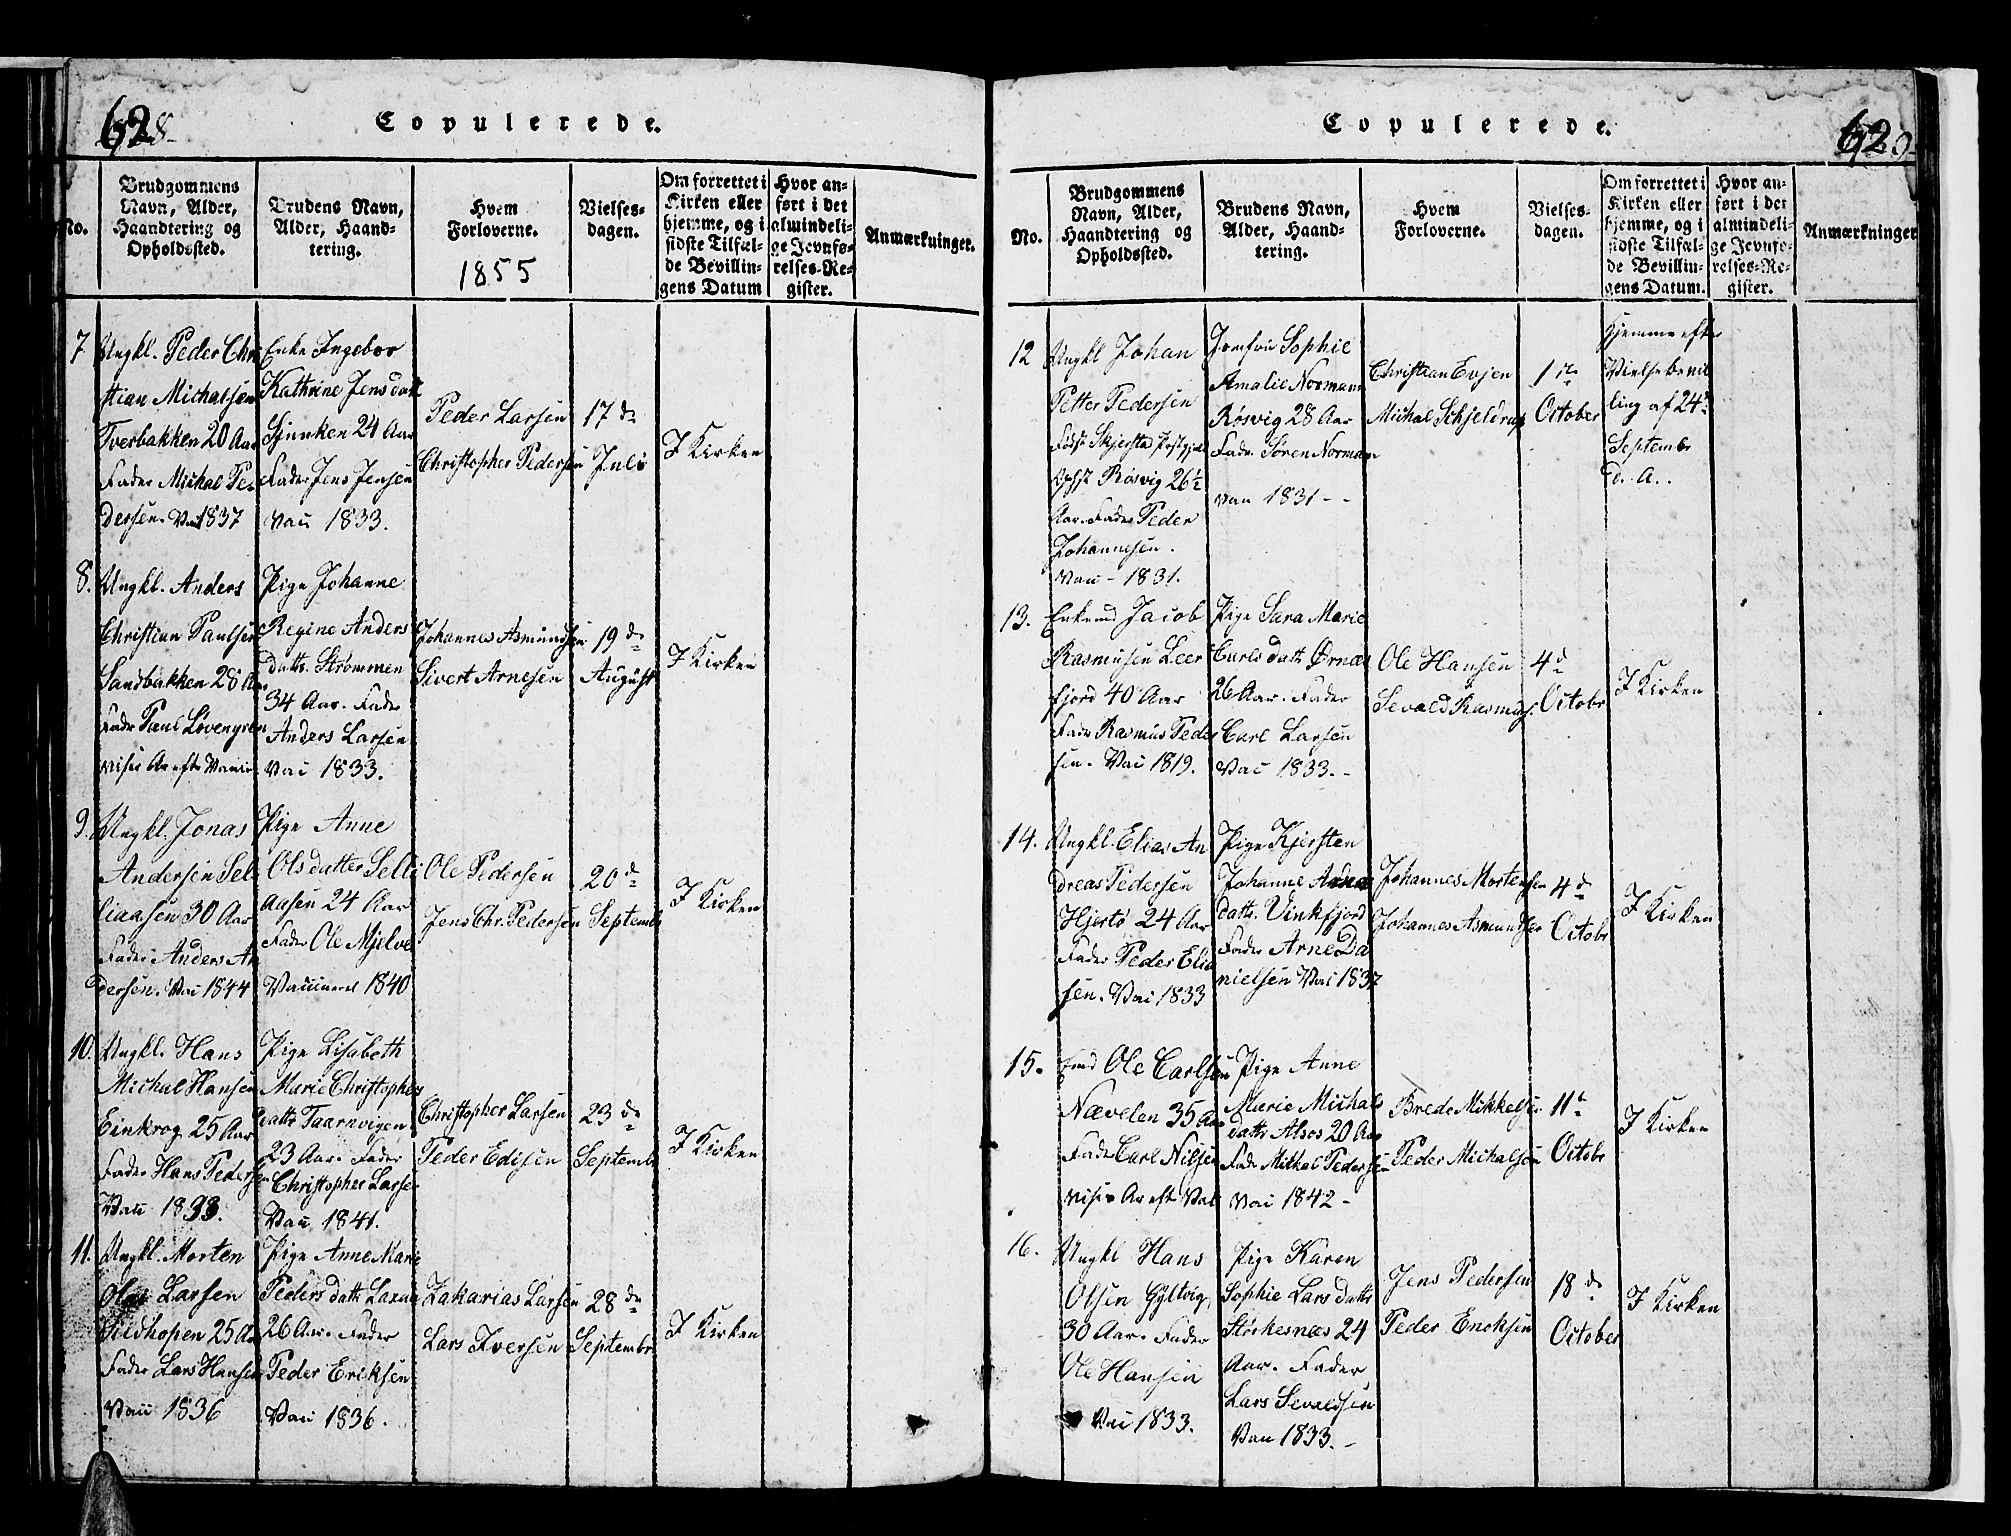 628
Copulerede.
No.
Brudgommens
Navn, Alder,
Haandtering og
Opholdssted.
Brudens Navn,
Alder, Haand-
tering.
Hvem
Forloverne.
1855
Vielses-
dagen.
Om forrettet i
Kirken eller
hjemme, og i
sidste Tilfæl-
de Bevillin-
gens Datum
Hvor an-
ført i det
almindeli-
ge Jevnfø-
relses-Re-
gister.
Anmærkninger.
7
Ungkl. Peder Chri
stian Michalsen
Tverbakken 20 Aar
Fader Michal Pe-
dersen. Vac 1837
Enke Ingebor
Kathrine Jensdatt
Sjunken 24 Aar
Fader Jens Jensen
Vac 1833.
Peder Larsen
Christopher Pedersen
17de
Juli
I Kirken
8.
Ungkl. Anders
Christian Paulsen
Sandbakken 28 Aar
Fader Paul Løvengren
viser A efter Vaccin
Pige Johanne
Regine Anders
datter Strømmen
34 Aar. Fader
Anders Larsen
Vac 1833.
Johannes Asmundsen
Sivert Arnesen
19de
August
I Kirken
9.
Ungkl. Jonas
Andersen Sel
liaasen 30 Aar
Fader Anders An
dersen. Vac 1844
Pige Anne
Olsdatter Selli
aasen 24 Aar
Fader Ole Mjelve
Vaccineret 1840
Ole Pedersen
Jens Chr. Pedersen
20de
Septembr
I Kirken
10.
Ungkl. Hans
Michal Hansen
Einkrog 25 Aar
Fader Hans Pedersen
Vac 1833.
Pige Lisabeth
Marie Christopher
datter Taarnvigen
23 Aar. Fader
Christopher Larsen
Vac 1841.
Christopher Larsen
Peder Edisen
23de
Septembr
I Kirken
11.
Ungkl. Morten
Olai Larsen
Sildhopen 25 Aar
Fader Lars Hansen
Vac 1836
Pige Anne Marie
Peders datter Laxaa
26 Aar. Fader
Peder Eriksen
Vac 1836.
Zakarias Larsen
Lars Iversen
28de
Septembr
I Kirken
Copulerede.
62
No.
Brudgommens
Navn, Alder,
Haandtering og
Opholdssted.
Brudens Navn,
Alder, Haand-
tering.
Hvem
Forloverne.
Vielses-
dagen.
Om forrettet i
Kirken eller
hjemme, og i
sidste Tilfæl-
de Bevillin-
gens Datum.
Hvor an-
ført i det
almindeli-
ge Jevnfø-
relses-Re-
gister.
Anmærkninger
12
Ungkl Johan
Petter Pedersen
Født Skjerstad Præstegjeld
Opht Røsvig 26½
Aar. Fader Peder
Johannesen.
Vac - 1831.
Jomfru Sophie
Amalie Normann
Røsvig 28 Aar
Fader Søren Normann
Vac 1831 - -
Christian Evjen
Michal Schjeldrup
1ste
October
Hjemme efter
Vielsebevil
ling af 24de
Septembr
d. A..
13.
Enkemd Jacob
Rasmusen Leer
fjord 40 Aar
Fader Rasmus Peder
sen. Vac 1819.
Pige Sara Marie
Carlsdatter Ørnæs
26 Aar. Fader
Carl Larsen
Vac 1833. -
Ole Hansen
Sevald Rasmus.
4de
Octobr
I Kirken
14.
Ungkl. Elias An
dreas Pedersen
Hjertø 24 Aar
Fader Peder Elia
sen. Vac 1833
Pige Kjersten
Johanne Arne
datter. Vinkfjord
Fader Arne Da
nielsen Vac 1837
Johannes Mortensen
Johannes Asmundsen
4de
Octobr
I Kirken
15.
Emd Ole Carlsen
Nævelen 35 Aar
Fader Carl Nilsen
viser A eft Vac
Pige Anne
Marie Michals
datter Alsos 20 Aar
Fader Mikal Pedersen
Vac 1842 -
Brede Mikkelsen
Peder Michalsen
11te
Octobr
I Kirken
16.
Ungkl Hans
Olsen Gyltvig,
30 Aar. Fader
Ole Hansen
Vac 1833.
Pige Karen
Sophie Larsdatter
Størkesnæs 24
Aar. Fader
Lars Sevaldsen
Vac 1833. -
Jens Pedersen
Peder Ericksen
18de
October
I Kirken